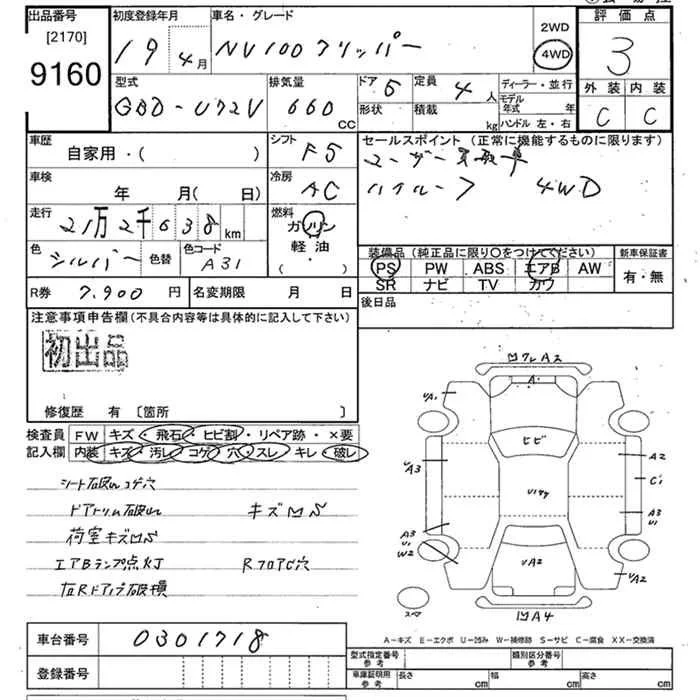 出品番号
[2170]
9160
初度登録年月
19 年 4月
車名・グレード
NV100クリッパー
2WD
4WD
評価点
3
外装 内装
C C
型式
GBD-U72V
排気量
660
CC
ドア 5
定員 4人
形状
積載
kg
ディーラー・並行
モデル年式 年
ハンドル 左・右
車歴
自家用・( )
シフト F5
セールスポイント (正常に機能するものに限ります)
ユーザー買取車
ハイルーフ 4WD
車検
年 月( 日)
冷房 AC
走行
21万2千638km
燃料
ガソリン
軽油
( ・ )
色 シルバー 色替
色コード A31
装備品(純正品に限り〇をつけてください)
PS PW ABS エアB AW
SR ナビ TV カワ
新車保証書
有・無
R券 7,900 円
名変期限 月 日
後日品
注意事項申告欄(不具合内容等は具体的に記入して下さい)
初出品
修復歴 有 〔箇所 〕
検査員 FW キズ・飛石・ヒビ割・リペア跡・×要
記入欄 内装 キズ・汚レ・コゲ・穴・スレ・キレ・破レ
シート破レコゲ穴
ドアトリム破レ キズ凹S
荷室キズ凹S
エアBランプ点灯 RフロアC穴
凹クレA2
A・
ヒビ
UA1
A2
UA3
C1
A3
U1
A3
U1
W2
UA2
UA2
凹A4
スペア
A-キズ E-エクボ U-凹み W-補修跡 S-サビ C-腐食 XX-交換済
車台番号 0301718
登録番号
型式指定番号
参考
類別区分番号
参考
車庫証明用
参考
長さ cm
幅 cm
高さ cm